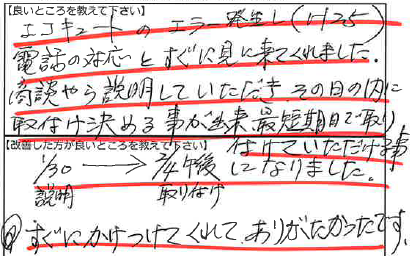 【良いところを教えて下さい】
エコキュートのエラー発生し(H25)
電話の対応とすぐに見に来てくれました。
商談やら説明していただき その日の内に
取付け決める事が出来、最短期日で取り
【改善した方が良いところを教えて下さい】
付けていただける事
1/30 → 2/4午後 になりました。
説明 取りつけ
すぐにかけつけてくれて、ありがたかったです。